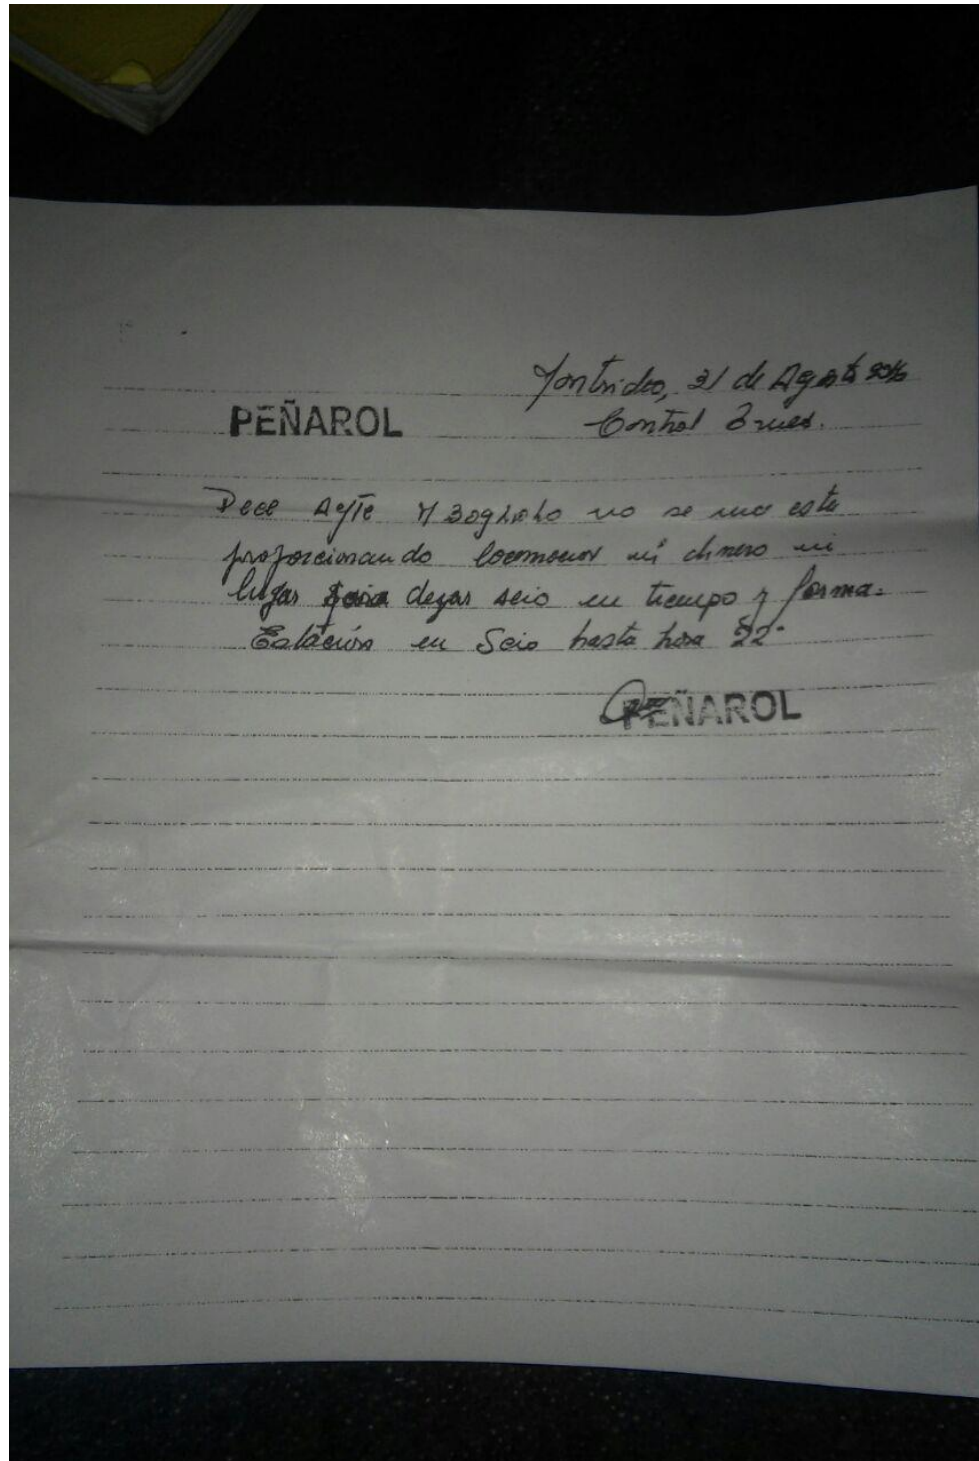 Montvideo, 31 de Agosto 2016
PEÑAROL
Control Trues.
Dece Agte M Bogliolo no se me esta
proporcionando locomocion ni dinero ni
lugar para dejar scio en tiempo y forma.
Estación en Scio hasta hora 22
PEÑAROL